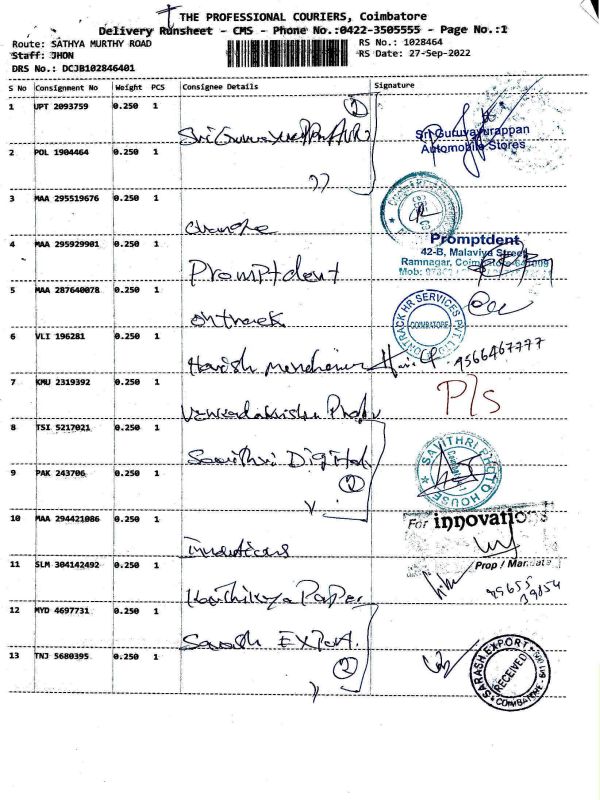 THE PROFESSIONAL COURIERS, Coimbatore
Delivery Runsheet - CMS - Phone No.:0422-3505555 - Page No.:1
Route: SATHYA MURTHY ROAD
RS No.: 1028464
Staff: JHON
RS Date: 27-Sep-2022
DRS No.: DCJB102846401
S No Consignment No Weight PCS Consignee Details Signature
1 UPT 2093759 0.250 1
2
Sri Guruvayurappan
Automobile Stores
2 POL 1904464 0.250 1
3 MAA 295519676 0.250 1
4 MAA 295929901 0.250 1 Promptdent
Promptdent
42-B, Malaviya Street
Ramnagar, Coimbatore-641009
Mob:
5 MAA 287640078 0.250 1
ONTRACK HR SERVICES PVT LTD
COIMBATORE
6 VLI 196281 0.250 1 Harish 9566467777
7 KMU 2319392 0.250 1
P/s
8 TSI 5217021 0.250 1 Savithri Digital
SAVITHRI PHOTO HOUSE
9 PAK 243706 0.250 1
2
10 MAA 294421086 0.250 1
For innovations
Prop / Mandate
11 SLM 304142492 0.250 1 Karthikya Paper
12 MYD 4697731 0.250 1 Sarash Export.
2
13 TNJ 5680395 0.250 1
SARASH EXPORT
RECEIVED
COIMBATORE